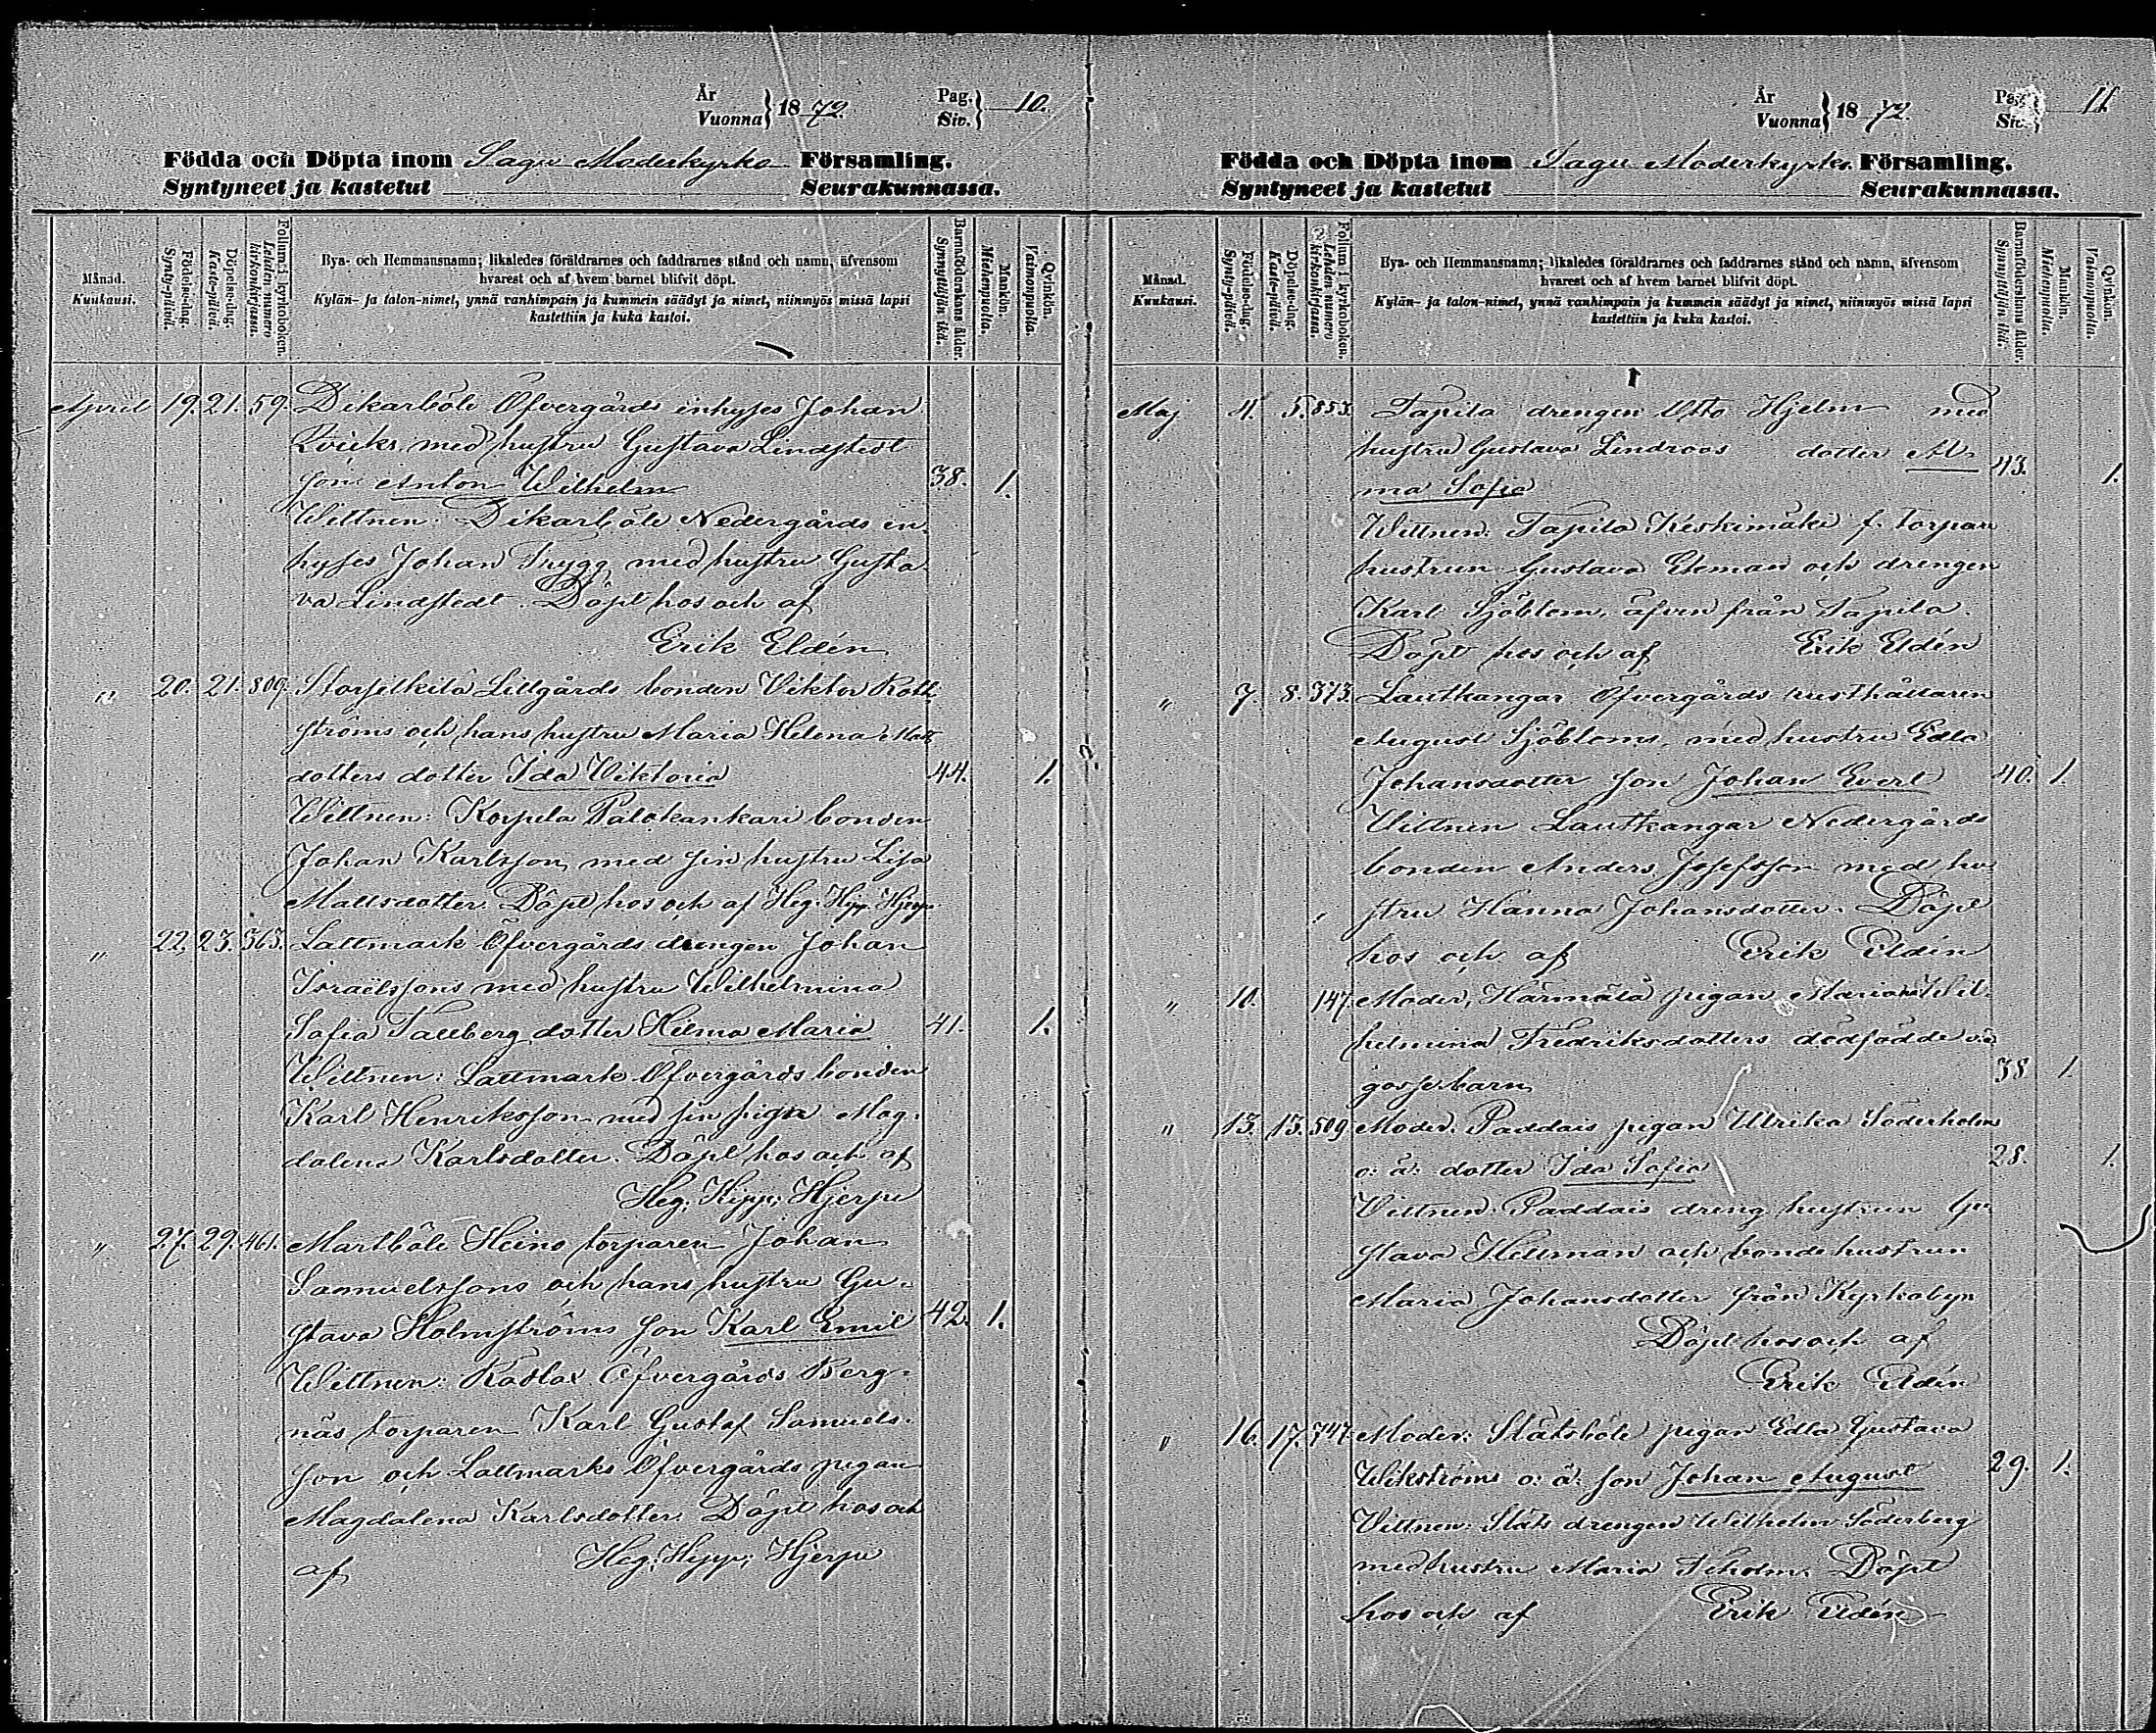 År
Vuonna } 1872.
Pag.
Siv. } 10.
Födda och Döpta inom Sagu Moderkyrko Församling.
Syntyneet ja kastetut Seurakunnassa.
Månad.
Kuukausi.
Födelse-dag.
Synty-päivä.
Döpelse-dag.
Kaste-päivä.
Folium i kyrkoboken.
Lehden numero kirkonkirjassa.
Bya- och Hemmansnamn; likaledes föräldrarnes och faddrarnes stånd och namn, äfvensom
hvarest och af hvem barnet blifvit döpt.
Kylän- ja talon-nimet, ynnä vanhimpain ja kummein säädyt ja nimet, niinmyös missä lapsi
kastettiin ja kuka kastoi.
Barnaföderskans ålder.
Synnyttäjän ikä.
Mankön.
Miehenpuolia.
Qvinkön.
Vaimonpuolia.
April 19. 21. 59. Dikarböle Öfvergårds inhyses Johan
Qvicks med hustru Gustava Lindstedt
son Anton Wilhelm 38. 1.
Wittnen: Dikarböle Nedergårds in
hyses Johan Trygg med hustru Gusta
va Lindstedt. Döpt hos och af
Erik Eldén
" 20. 21. 809. Storsilkilä Lillgårds bonden Viktor
ströms och hans hustru Maria Helena Matts
dotters dotter Ida Viktoria 44. 1.
Wittnen: Korpela Palokankari bonden
Johan Karlsson med sin hustru Lisa
Mattsdotter. Döpt hos och af Heg. Kypp. Hjerpe
" 22. 23. 363. Lattmark Öfvergårds drengen Johan
Israelssons med hustru Wilhelmina
Sofia Tallberg dotter Hilma Maria 41. 1.
Wittnen: Lattmark Öfvergårds bonden
Karl Henriksson med sin piga Mag-
dalena Karlsdotter. Döpt hos och af
Heg. Kypp. Hjerpe
" 27. 29. 461. Martböle Heino torparen Johan
Samuelssons och hans hustru Gu-
stava Holmströms son Karl Emil 42. 1.
Wittnen: Kaslax Öfvergårds Berg-
näs torparen Karl Gustaf Samuels-
son och Lattmarks Öfvergårds pigan
Magdalena Karlsdotter. Döpt hos och
af Heg. Kypp. Hjerpe
År
Vuonna } 1872.
Pag.
Siv. } 11.
Födda och Döpta inom Sagu Moderkyrko Församling.
Syntyneet ja kastetut Seurakunnassa.
Månad.
Kuukausi.
Födelse-dag.
Synty-päivä.
Döpelse-dag.
Kaste-päivä.
Folium i kyrkoboken.
Lehden numero kirkonkirjassa.
Bya- och Hemmansnamn; likaledes föräldrarnes och faddrarnes stånd och namn, äfvensom
hvarest och af hvem barnet blifvit döpt.
Kylän- ja talon-nimet, ynnä vanhimpain ja kummein säädyt ja nimet, niinmyös missä lapsi
kastettiin ja kuka kastoi.
Barnaföderskans ålder.
Synnyttäjän ikä.
Mankön.
Miehenpuolia.
Qvinkön.
Vaimonpuolia.
Maj 4. 5. 853. Tapila drengen Otto Hjelm med
hustru Gustava Lindroos dotter Al-
ma Sofia 43. 1.
Wittnen: Tapila Keskimäki f. torpare
hustrun Gustava Ekman och drengen
Karl Sjöblom, äfven från Tapila.
Döpt hos och af Erik Eldén
" 7. 8. 373. Lautkangar Öfvergårds rusthållaren
August Sjöbloms, med hustru Edla
Johansdotter son Johan Evert 40. 1.
Wittnen Lautkangar Nedergårds
bonden Anders Josefsson med hu-
stru Hanna Johansdotter. Döpt
hos och af Erik Eldén
" 10. 147. Moder, Härmälä pigan Maria Wil-
helmina Fredriksdotters dödfödde o. ä.
gossebarn 38 1.
" 13. 13. 509 Moder. Paddais pigan Ulrika Söderholms
o: ä: dotter Ida Sofia 28. 1.
Wittnen: Paddais dreng hustrun Gu
stava Hellman och bondehustrun
Maria Johansdotter från Kyrkobyn
Döpt hos och af
Erik Eldén
" 16. 17. 747. Moder: Slätsböle pigan Edla Gustava
Wikströms o: ä: son Johan August 29. 1.
Vittnen: Släts drengen Wilhelm Söderberg
med hustru Maria Döpt
hos och af Erik Eldén